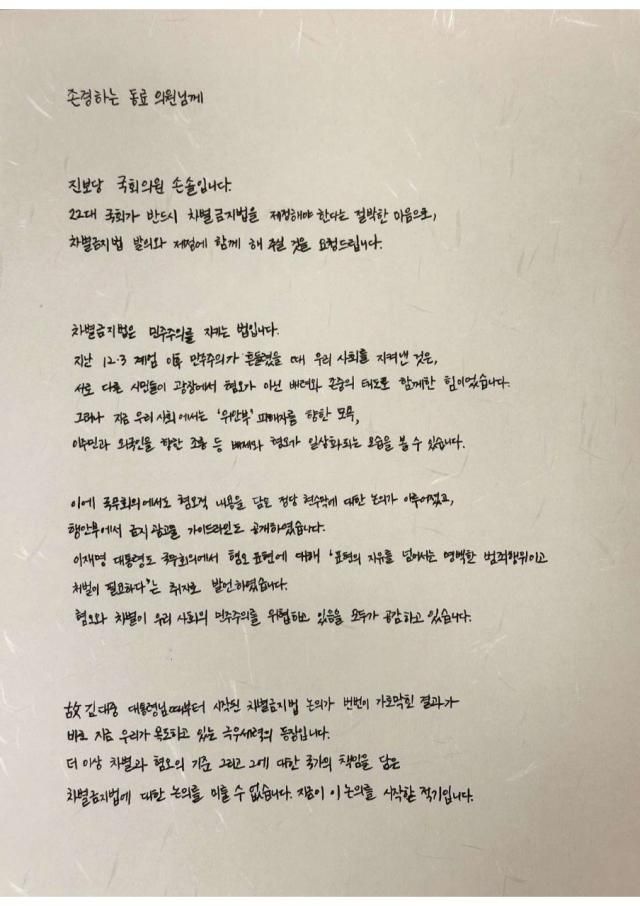 존경하는 동료 의원님께
진보당 국회의원 손솔입니다.
22대 국회가 반드시 차별금지법을 제정해야 한다는 절박한 마음으로,
차별금지법 발의와 제정에 함께 해 주실 것을 요청드립니다.
차별금지법은 민주주의를 지키는 법입니다.
지난 12·3 계엄 이후 민주주의가 흔들렸을 때 우리 사회를 지켜낸 것은,
서로 다른 시민들이 광장에서 혐오가 아닌 배려와 존중의 태도로 함께한 힘이었습니다.
그러나 지금 우리 사회에서는 '위안부' 피해자를 향한 모욕,
이주민과 외국인을 향한 조롱 등 배제와 혐오가 일상화되는 모습을 볼 수 있습니다.
이에 국무회의에서도 혐오적 내용을 담은 정당 현수막에 대한 논의가 이루어졌고,
행안부에서 금지광고물 가이드라인도 공개하였습니다.
이재명 대통령도 국무회의에서 혐오 표현에 대해 '표현의 자유를 넘어서는 명백한 범죄행위이고
처벌이 필요하다'는 취지로 발언하였습니다.
혐오와 차별이 우리 사회의 민주주의를 위협하고 있음을 모두가 공감하고 있습니다.
故 김대중 대통령님 때부터 시작된 차별금지법 논의가 번번이 가로막힌 결과가
바로 지금 우리가 목도하고 있는 극우세력의 등장입니다.
더 이상 차별과 혐오의 기준 그리고 그에 대한 국가의 책임을 담은
차별금지법에 대한 논의를 미룰 수 없습니다. 지금이 이 논의를 시작할 적기입니다.